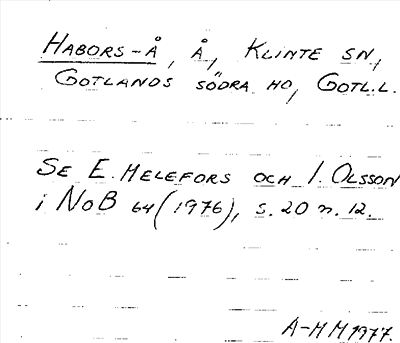 HABORS-Å, Å, KLINTE SN,
GOTLANDS SÖDRA HD, GOTL.L.
SE E. MELEFORS OCH I. OLSSON
i NoB 64 (1976), s. 20 n. 12.
A-M M 1977.